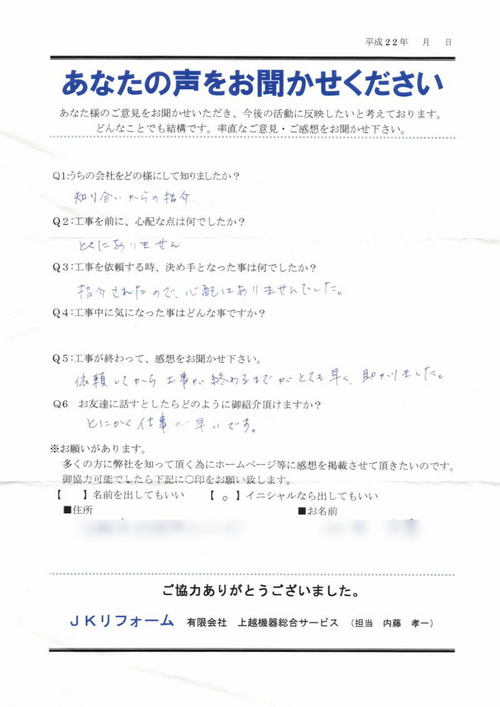 平成22年　月　日
あなたの声をお聞かせください
あなた様のご意見をお聞かせいただき、今後の活動に反映したいと考えております。
どんなことでも結構です。率直なご意見・ご感想をお聞かせ下さい。
Q1:うちの会社をどの様にして知りましたか？
知り合いからの紹介
Q2：工事を前に、心配な点は何でしたか？
とくにありません
Q3：工事を依頼する時、決め手となった事は何でしたか？
紹介されたので、心配はありませんでした。
Q4：工事中に気になった事はどんな事ですか？
Q5：工事が終わって、感想をお聞かせ下さい。
依頼してから工事が終わるまでがとても早く、助かりました。
Q6　お友達に話すとしたらどのように御紹介頂けますか？
とにかく仕事が早いです。
※お願いがあります。
多くの方に弊社を知って頂く為にホームページ等に感想を掲載させて頂きたいのです。
御協力可能でしたら下記に〇印をお願い致します。
【　　】名前を出してもいい　　【 o 】イニシャルなら出してもいい
■住所　　■お名前
ご協力ありがとうございました。
JKリフォーム　有限会社　上越機器総合サービス　（担当　内藤　孝一）